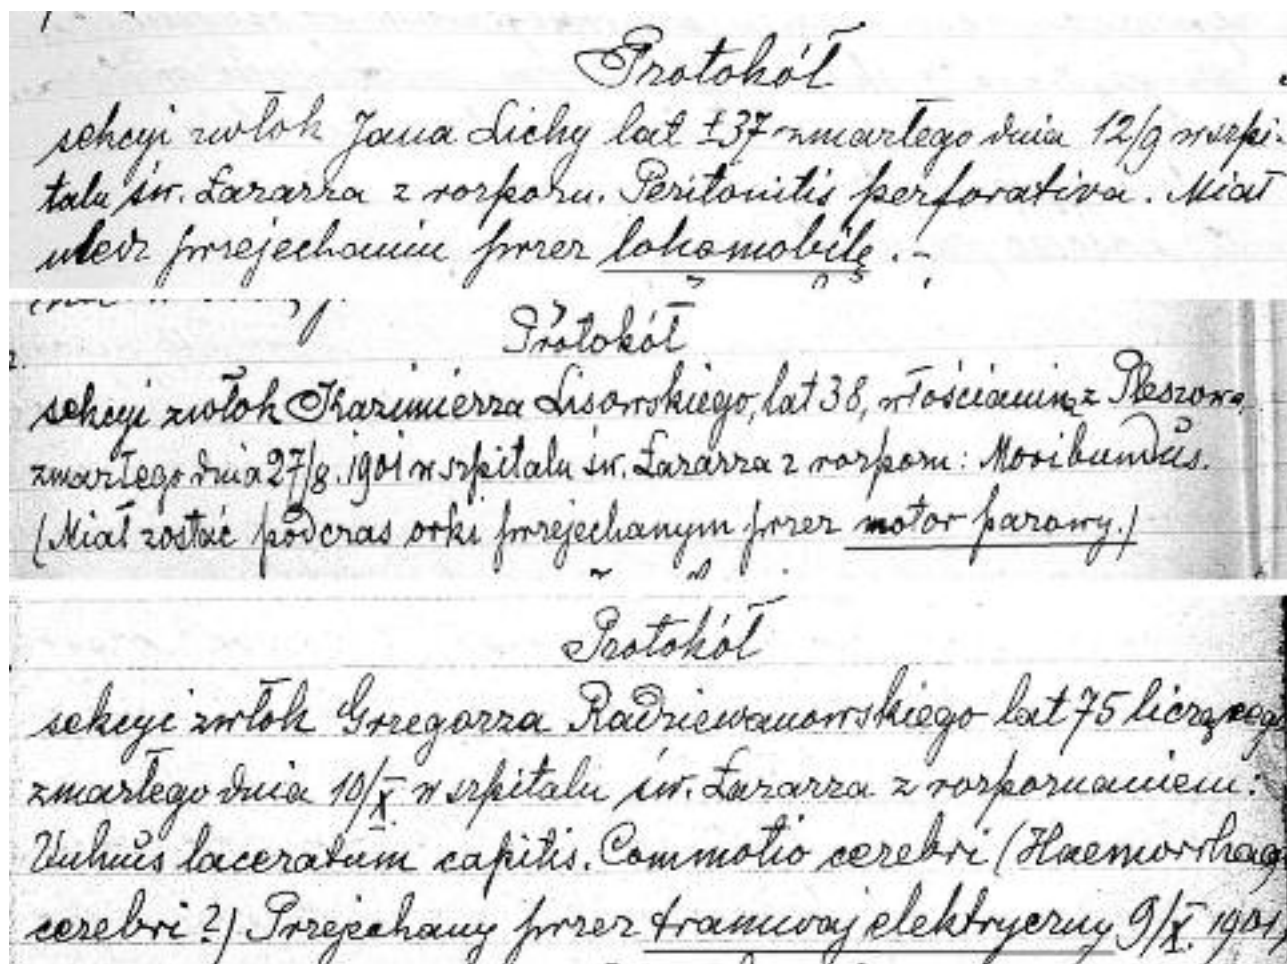 Protokół
sekcyi zwłok Jana Lichy lat ±37 zmarłego dnia 12/9 w szpi-
talu św. Łazarza z rozpozn. Peritonitis perforativa. Miał
uledz przejechaniu przez lokomobilę.-
Protokół
sekcyi zwłok Kazimierza Lisowskiego, lat 38, włościanina z Pleszowa,
zmarłego dnia 27/8. 1901 w szpitalu św. Łazarza z rozpozn: Moribundus.
(Miał zostać podczas orki przejechanym przez motor parowy.)
Protokół
sekcyi zwłok Grzegorza Radziewanowskiego lat 75 liczącego
zmarłego dnia 10/X w szpitalu św. Łazarza z rozpoznaniem:
Vulnus laceratum capitis. Commotio cerebri (Haemorrhag
cerebri?) Przejechany przez tramwaj elektryczny 9/X. 1901)